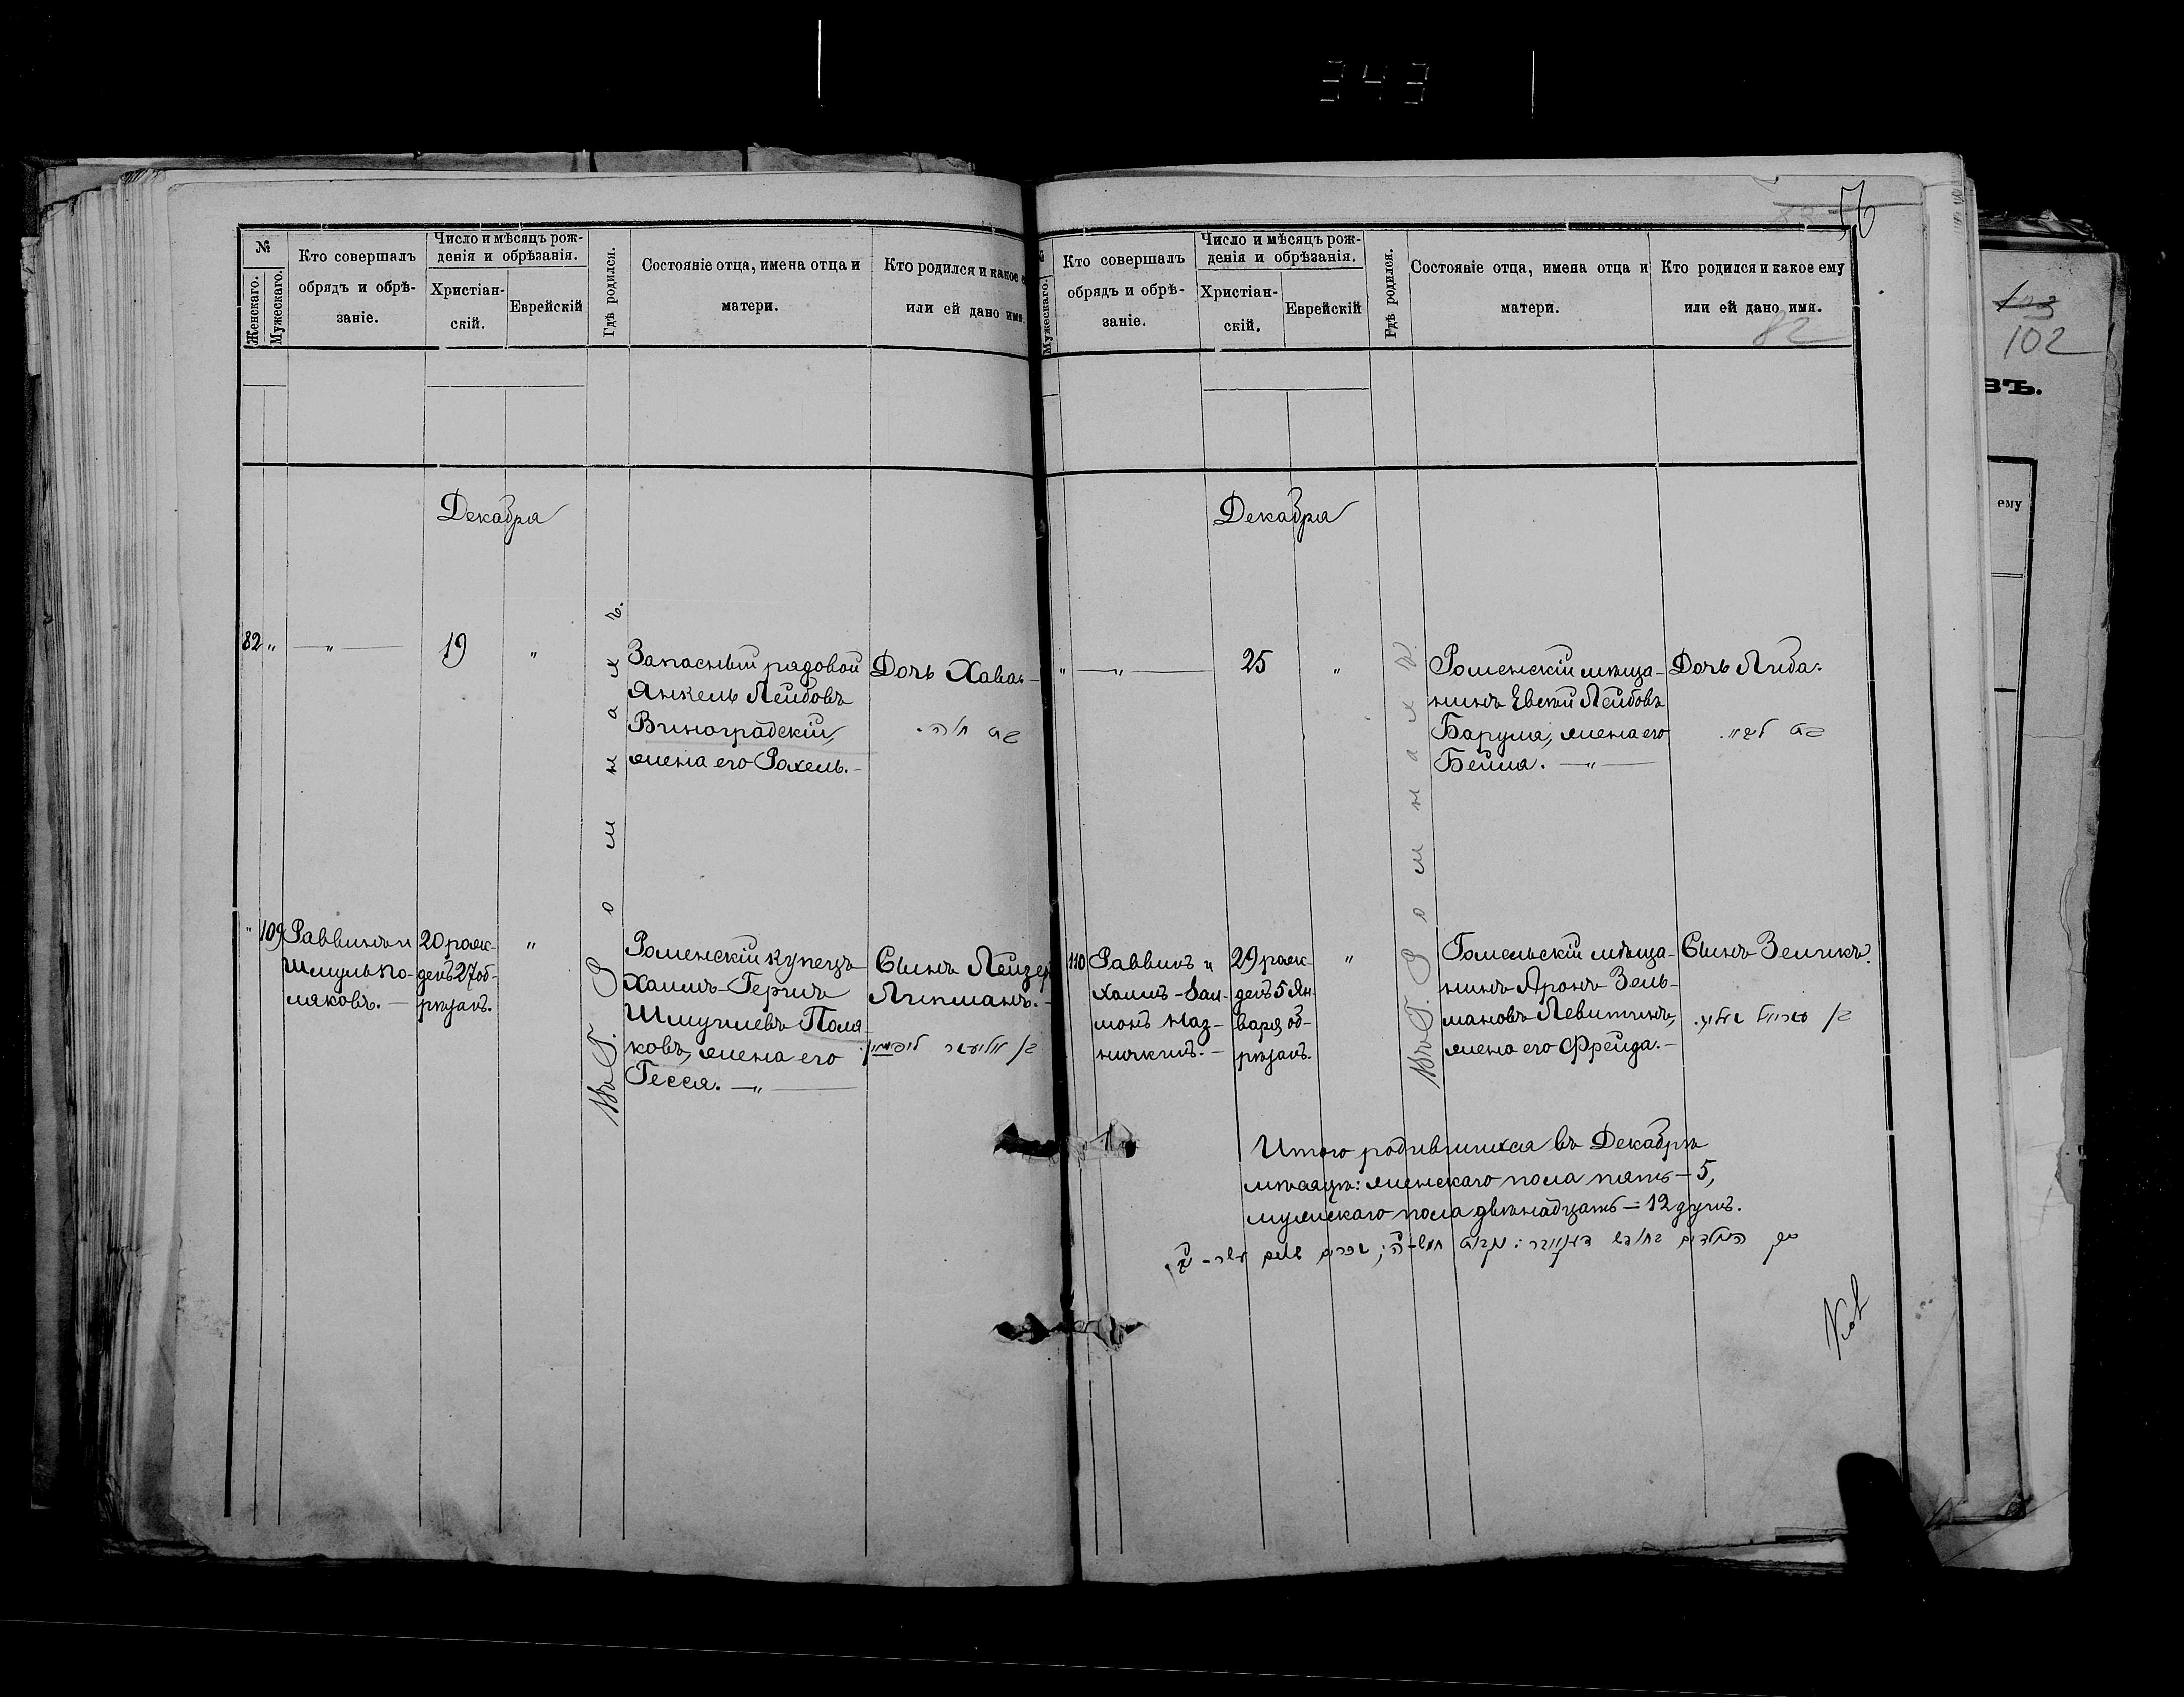 343
№
Женскаго.
Мужескаго.
Кто совершалъ
обрядъ и обрѣ-
заніе.
Число и мѣсяцъ рож-
денія и обрѣзанія.
Христіан-
скій.
Еврейскій
Гдѣ родился.
Состояніе отца, имена отца и
матери.
Кто родился и какое
или ей дано имя.
Декабря
82 "
"
19
"
Запасный рядовой
Янкель Лейбовъ
Виноградскій,
жена его Рохель.
Дочь Хава.
בת חוה.
" 109
Раввинъ и
Шмуль По-
ляковъ.
20 рож-
денъ 27 об-
рѣзанъ.
"
Въ Г. Ромнахъ.
Роменскій купецъ
Хаимъ-Гершъ
Шмулевъ Поля-
ковъ, жена его
Гесся. "
Сынъ Лейзеръ
Липманъ.
בן אליעזר ליפמאן.
56
Мужескаго.
Кто совершалъ
обрядъ и обрѣ-
заніе.
Число и мѣсяцъ рож-
денія и обрѣзанія.
Христіан-
скій.
Еврейскій
Гдѣ родился.
Состояніе отца, имена отца и
матери.
Кто родился и какое ему
или ей дано имя.
82
Декабря
"
"
25
"
Роменскій мѣща-
нинъ Евсей Лейбовъ
жена его
Бейля. "
Дочь Либа.
בת ליבא.
110
Раввинъ и
Хаимъ-Зал-
монъ Наз-
29 рож-
денъ 5 Ян-
варя об-
рѣзанъ.
"
Въ Г. Ромнахъ.
Гомельскій мѣща-
нинъ Аронъ Зель-
мановъ Левитинъ,
жена его Фрейда.
Сынъ Зеликъ.
בן
Итого родившихся въ Декабрѣ
мѣсяцѣ: женскаго пола пять – 5,
мужескаго пола двѣнадцать – 12 душъ.
102
въ.
ему